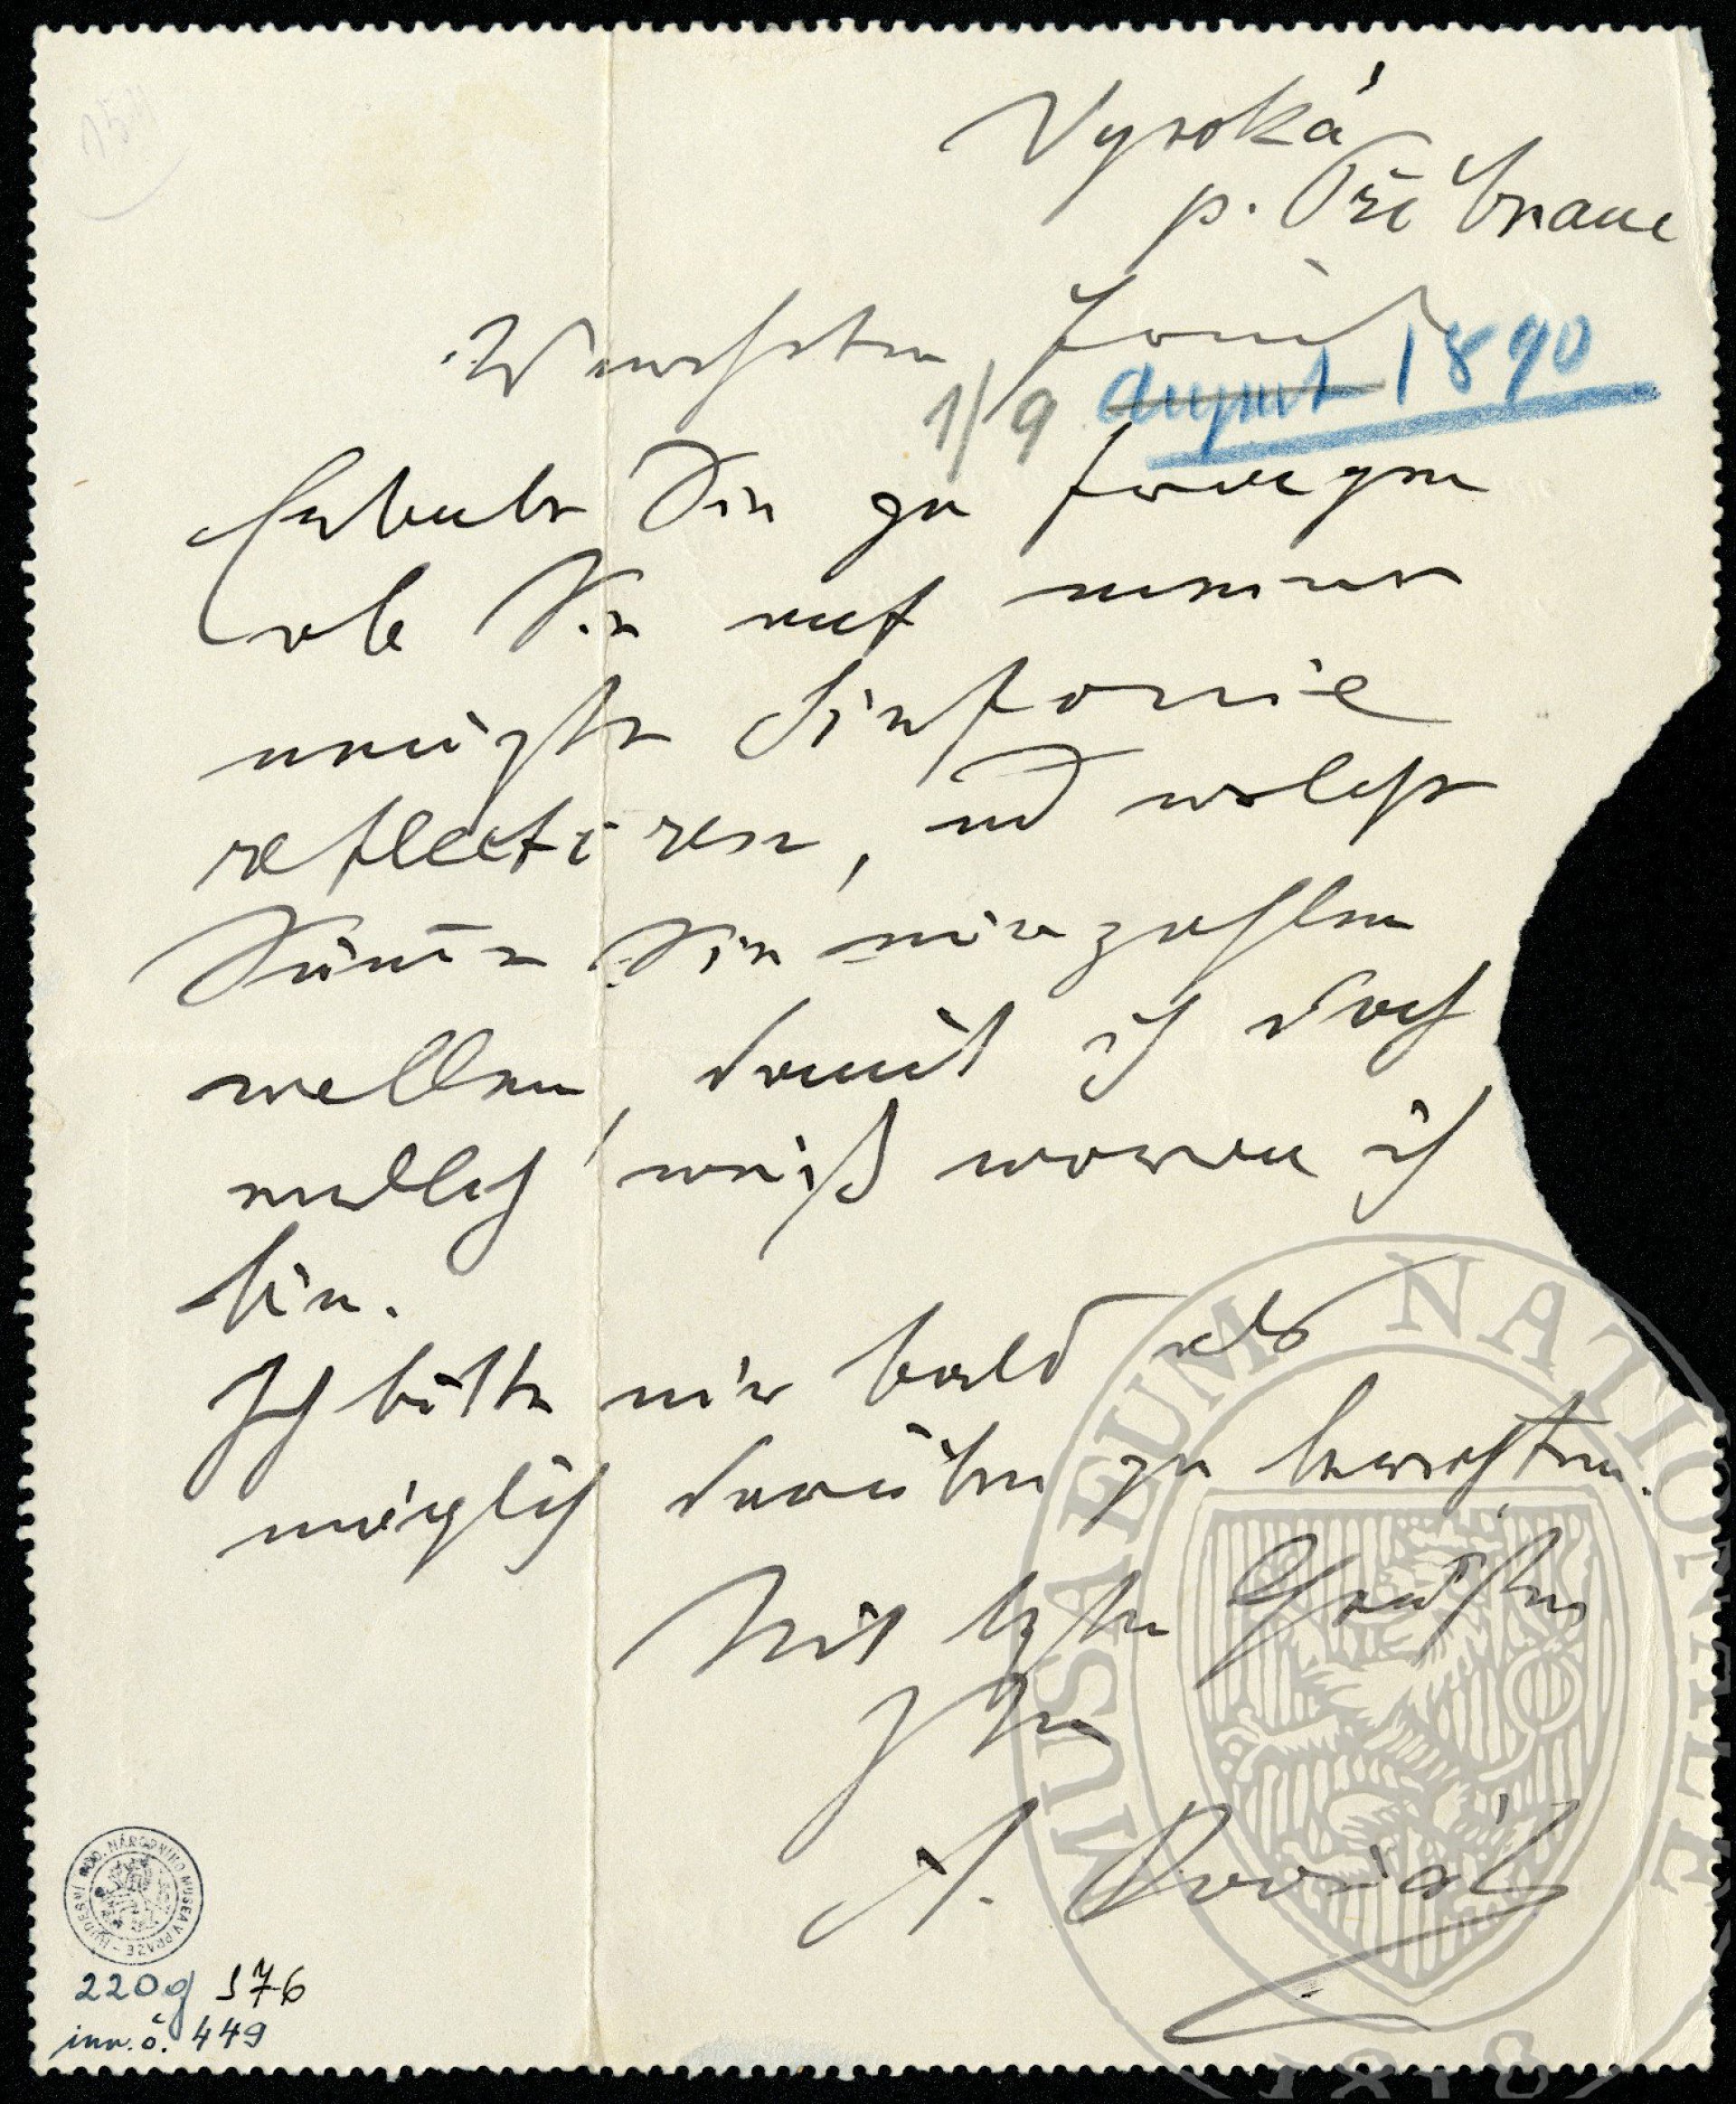 Vysoká
p. Příbrame
Verehrter Freund
1/9 August 1890
Erlaube Sie zu fragen
ob Sie auf meine
neuigste Sinfonie
reflectiren, und welche
Sum̄e Sie mir zahlen
wollen, damit ich doch
endlich weiß woran ich
bin.
Ich bitte mir bald als
möglich darüber zu berichten.
Mit Grüßen
Ihr
A. Dvořák
MUSAEUM NATIONALE
1818
HUDEBNÍ ODD. NÁRODNÍHO MUSEA V PRAZE
220g 176
inv. č. 449